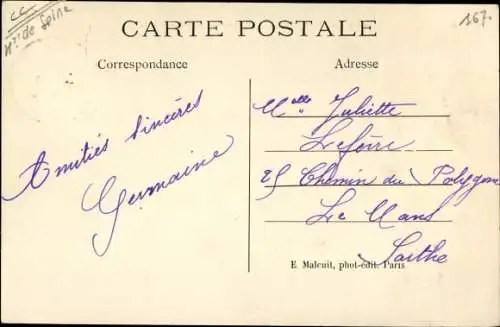 Hts de Seine
167.
CARTE POSTALE
Correspondance
Adresse
Amitiés Sincères
Germaine
Melle Juliette
Lefèvre
25 Chemin du Polygone
Le Mans
Sarthe
E. Malcuit, phot-édit. Paris